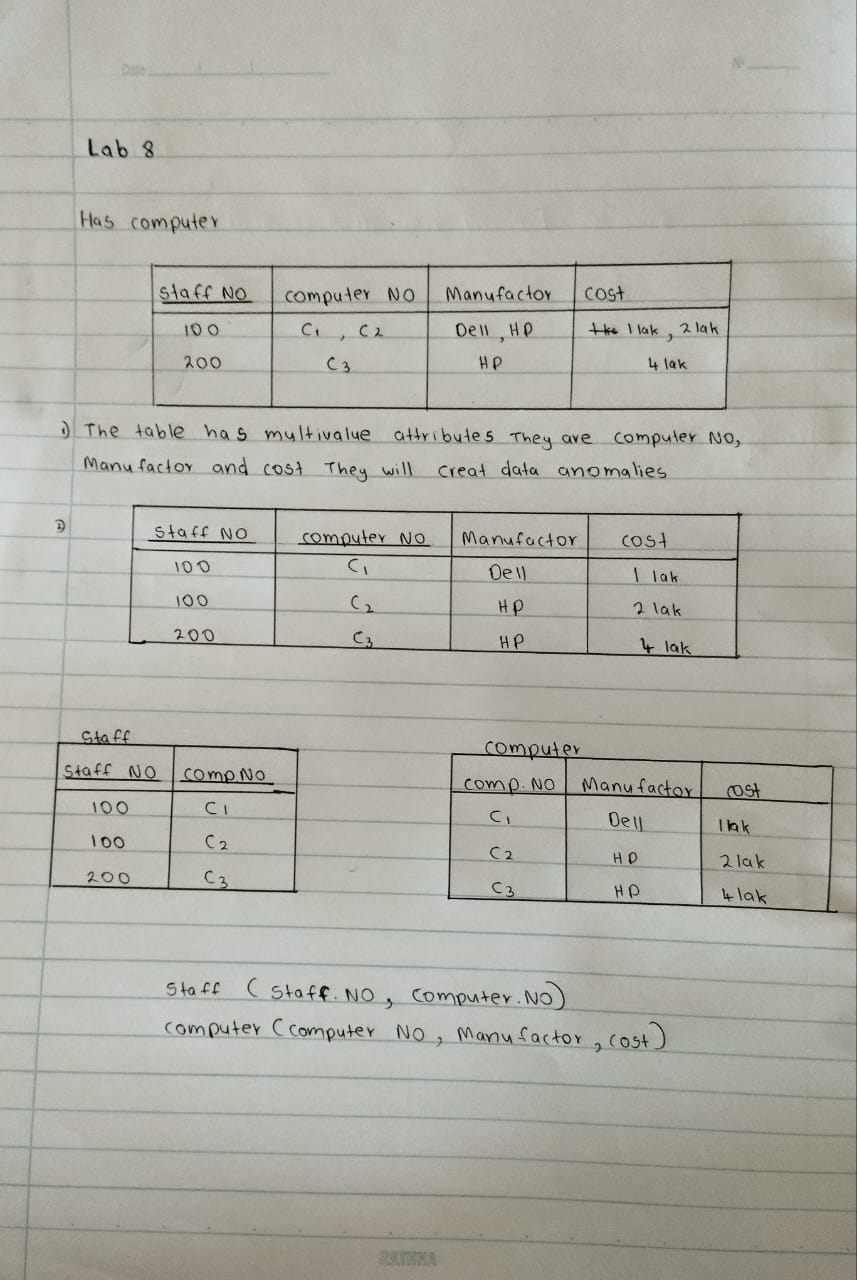 Date
Nº
Lab 8
Has computer
Staff NO computer NO Manufactor cost
100 C1 , C2 Dell , HP 1 lak , 2 lak
200 C3 HP 4 lak
1) The table has multivalue attributes They are computer NO,
Manufactor and cost They will creat data anomalies
2)
Staff NO computer NO Manufactor cost
100 C1 Dell 1 lak
100 C2 HP 2 lak
200 C3 HP 4 lak
Staff
Staff NO comp NO
100 C1
100 C2
200 C3
computer
comp. NO Manufactor cost
C1 Dell 1 lak
C2 HP 2 lak
C3 HP 4 lak
Staff ( Staff. NO , Computer. NO)
computer (computer NO , Manufactor , cost)
RATHNA